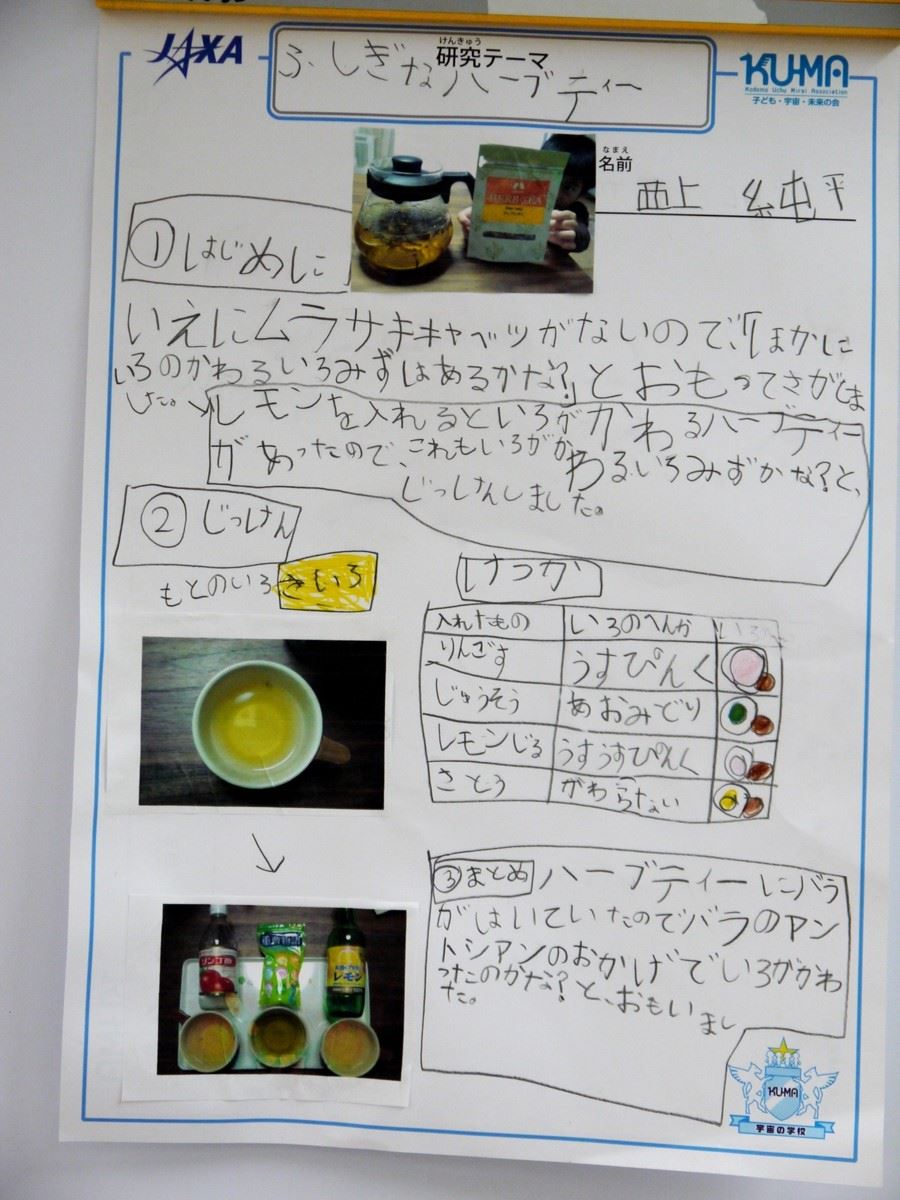 JAXA
けんきゅう
研究テーマ
ふしぎなハーブティー
KU-MA
Kodomo Uchu Mirai Association
子ども・宇宙・未来の会
なまえ
名前
西上 純平
HERB TEA
①はじめに
いえにムラサキキャベツがないので、「ほかに
いろのかわるいろみずはあるかな?」とおもってさがしま
した。
レモンを入れるといろがかわるハーブティー
があったので、これもいろがかわるいろみずかな?と、
じっけんしました。
②じっけん
もとのいろ きいろ
けっか
入れたもの いろのへんか いろ
りんごす うすぴんく
じゅうそう あおみどり
レモンじる うすうすぴんく
さとう かわらない
リンゴ酢
レモン
③まとめ ハーブティーにバラ
がはいていたのでバラのアン
トシアンのおかげでいろがかわ
ったのかな?と、おもいまし
た。
KU-MA
宇宙の学校